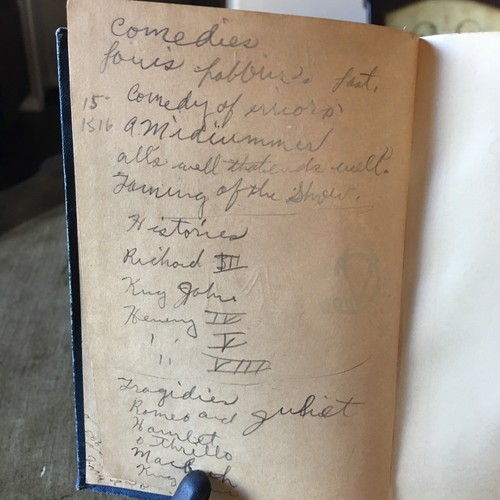 Comedies
Louis Labbirs. Lost.
15- Comedy of errors
1516 a Midiummer
all's well that ends well.
Taming of the Shrew.
Histories
Richard III
King John
Heneny IV
" V
" VIII
Tragidies
Romeo and Juliet
Hamlet
Othrello
Macbeth
King